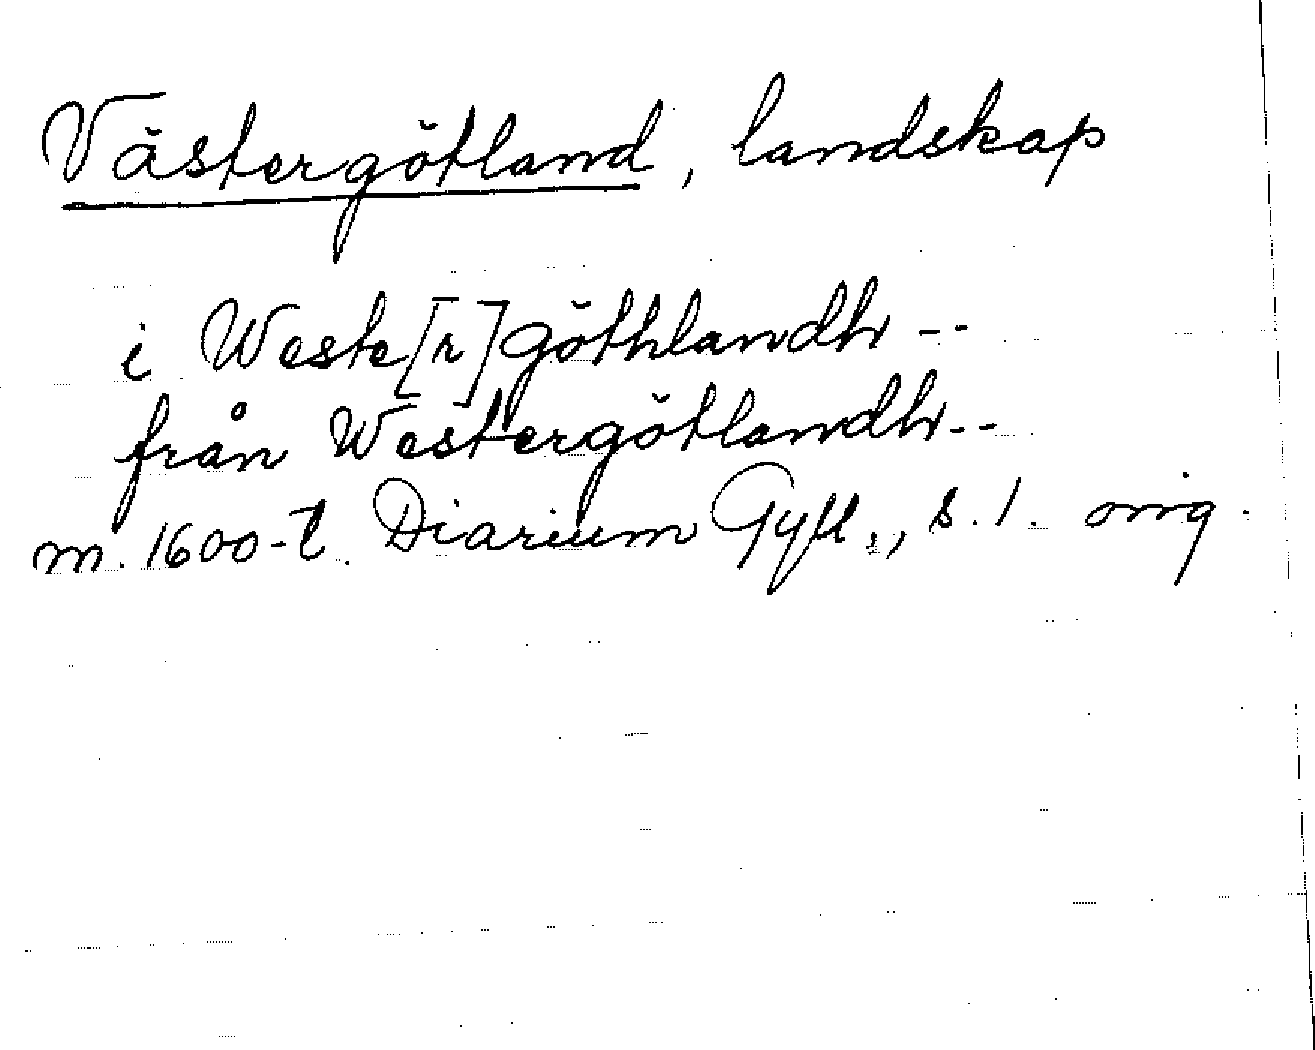 Västergötland, landskap
i Weste[r]göthlandh --
från Westergötlandh --
m. 1600-t. Diarium Gyll., s. 1. orig.